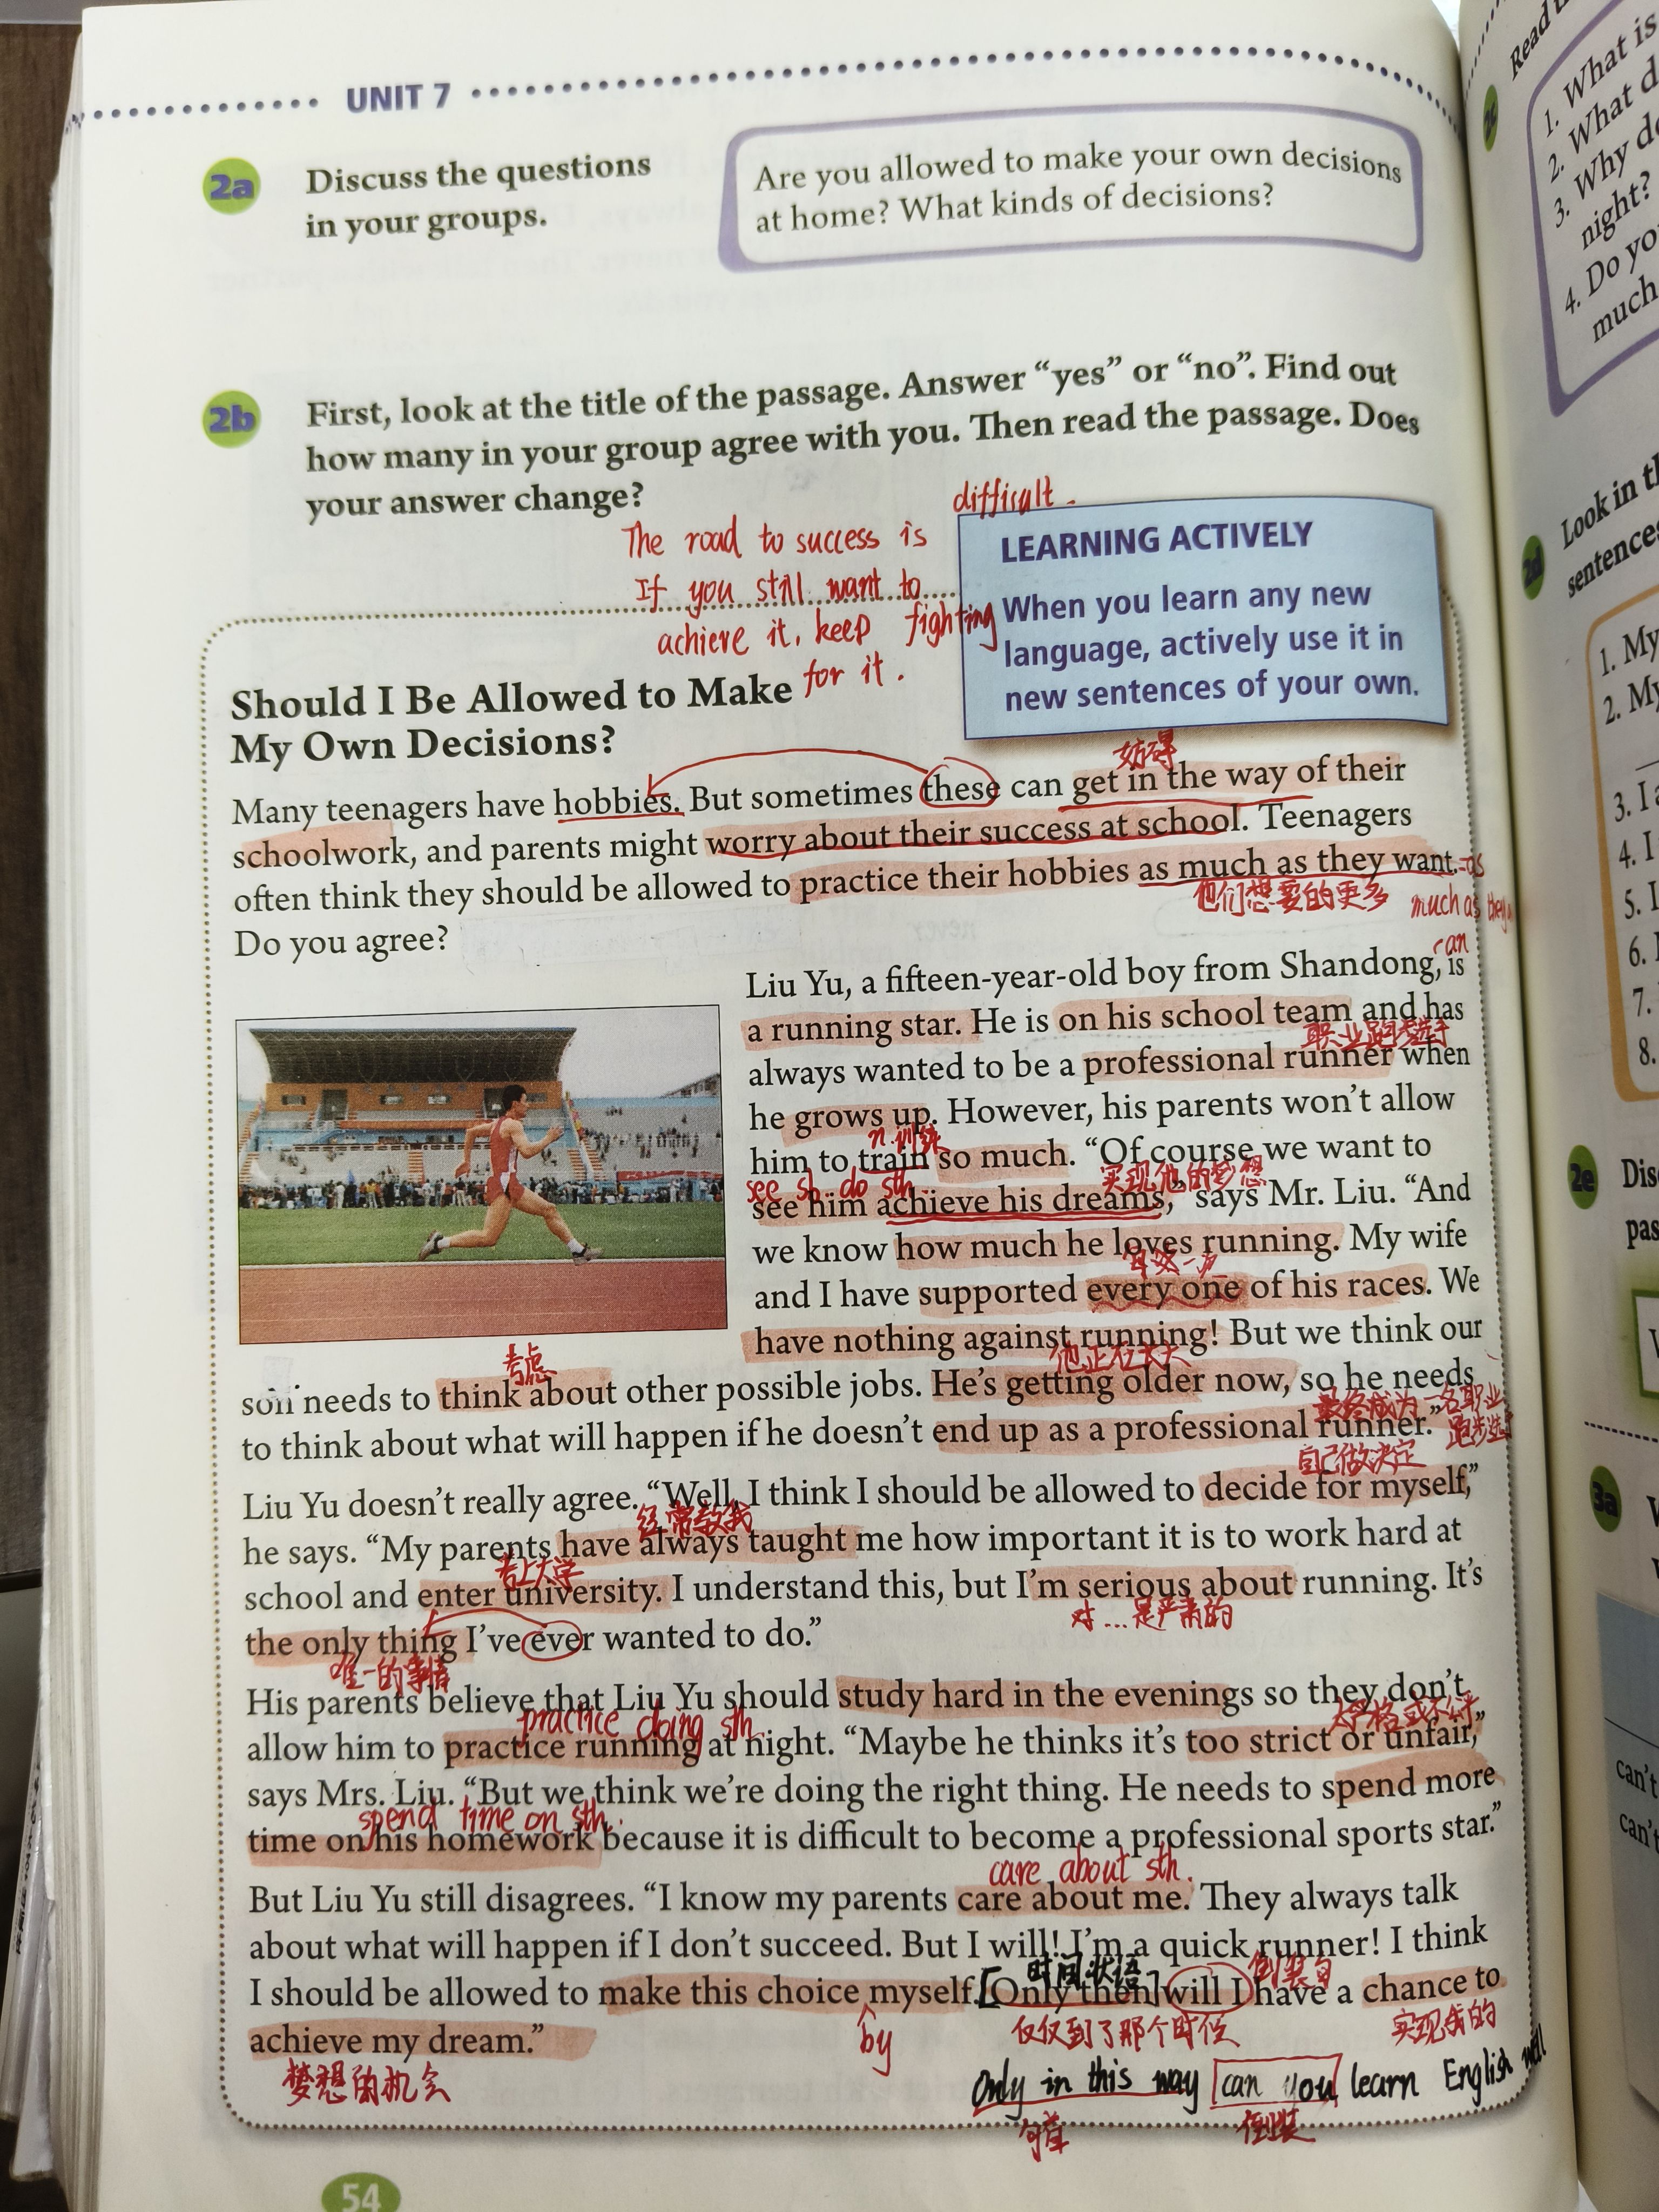 UNIT 7
2a
Discuss the questions
in your groups.
Are you allowed to make your own decisions
at home? What kinds of decisions?
2b
First, look at the title of the passage. Answer “yes” or “no”. Find out
how many in your group agree with you. Then read the passage. Does
your answer change?
The road to success is difficult.
If you still want to
achieve it, keep fighting
for it.
LEARNING ACTIVELY
When you learn any new
language, actively use it in
new sentences of your own.
Should I Be Allowed to Make
My Own Decisions?
妨碍
Many teenagers have hobbies. But sometimes these can get in the way of their
schoolwork, and parents might worry about their success at school. Teenagers
often think they should be allowed to practice their hobbies as much as they want.
=as
他们想要的更多
much as they
can
Do you agree?
Liu Yu, a fifteen-year-old boy from Shandong, is
a running star. He is on his school team and has
职业跑步选手
always wanted to be a professional runner when
he grows up. However, his parents won’t allow
n.训练
him to train so much. “Of course we want to
see sb do sth
实现他的梦想
see him achieve his dreams,” says Mr. Liu. “And
we know how much he loves running. My wife
每效一次
and I have supported every one of his races. We
have nothing against running! But we think our
考虑
他正在长大
son needs to think about other possible jobs. He’s getting older now, so he needs
最终成为一名职业
跑步选手
to think about what will happen if he doesn’t end up as a professional runner.”
自己做决定
Liu Yu doesn’t really agree. “Well, I think I should be allowed to decide for myself,”
经常教我
he says. “My parents have always taught me how important it is to work hard at
考上大学
school and enter university. I understand this, but I’m serious about running. It’s
对...是严肃的
the only thing I’ve ever wanted to do.”
唯一的事情
His parents believe that Liu Yu should study hard in the evenings so they don’t
practice doing sth
allow him to practice running at night. “Maybe he thinks it’s too strict or unfair,”
says Mrs. Liu. “But we think we’re doing the right thing. He needs to spend more
spend time on sth.
time on his homework because it is difficult to become a professional sports star.”
care about sth.
But Liu Yu still disagrees. “I know my parents care about me. They always talk
about what will happen if I don’t succeed. But I will! I’m a quick runner! I think
时间状语
倒装句
I should be allowed to make this choice myself. [Only then] will I have a chance to
by
仅仅到了那个时候
实现我的
achieve my dream.”
梦想的机会
Only in this way can you learn English well
句首
倒装
54
2c
Read
1. What is
2. What d
3. Why d
night?
4. Do yo
much
2d
Look in th
sentence
1. My
2. My
3. I
4. I
5. I
6.
7.
8.
2e
Dis
pas
3a
can’t
can’t